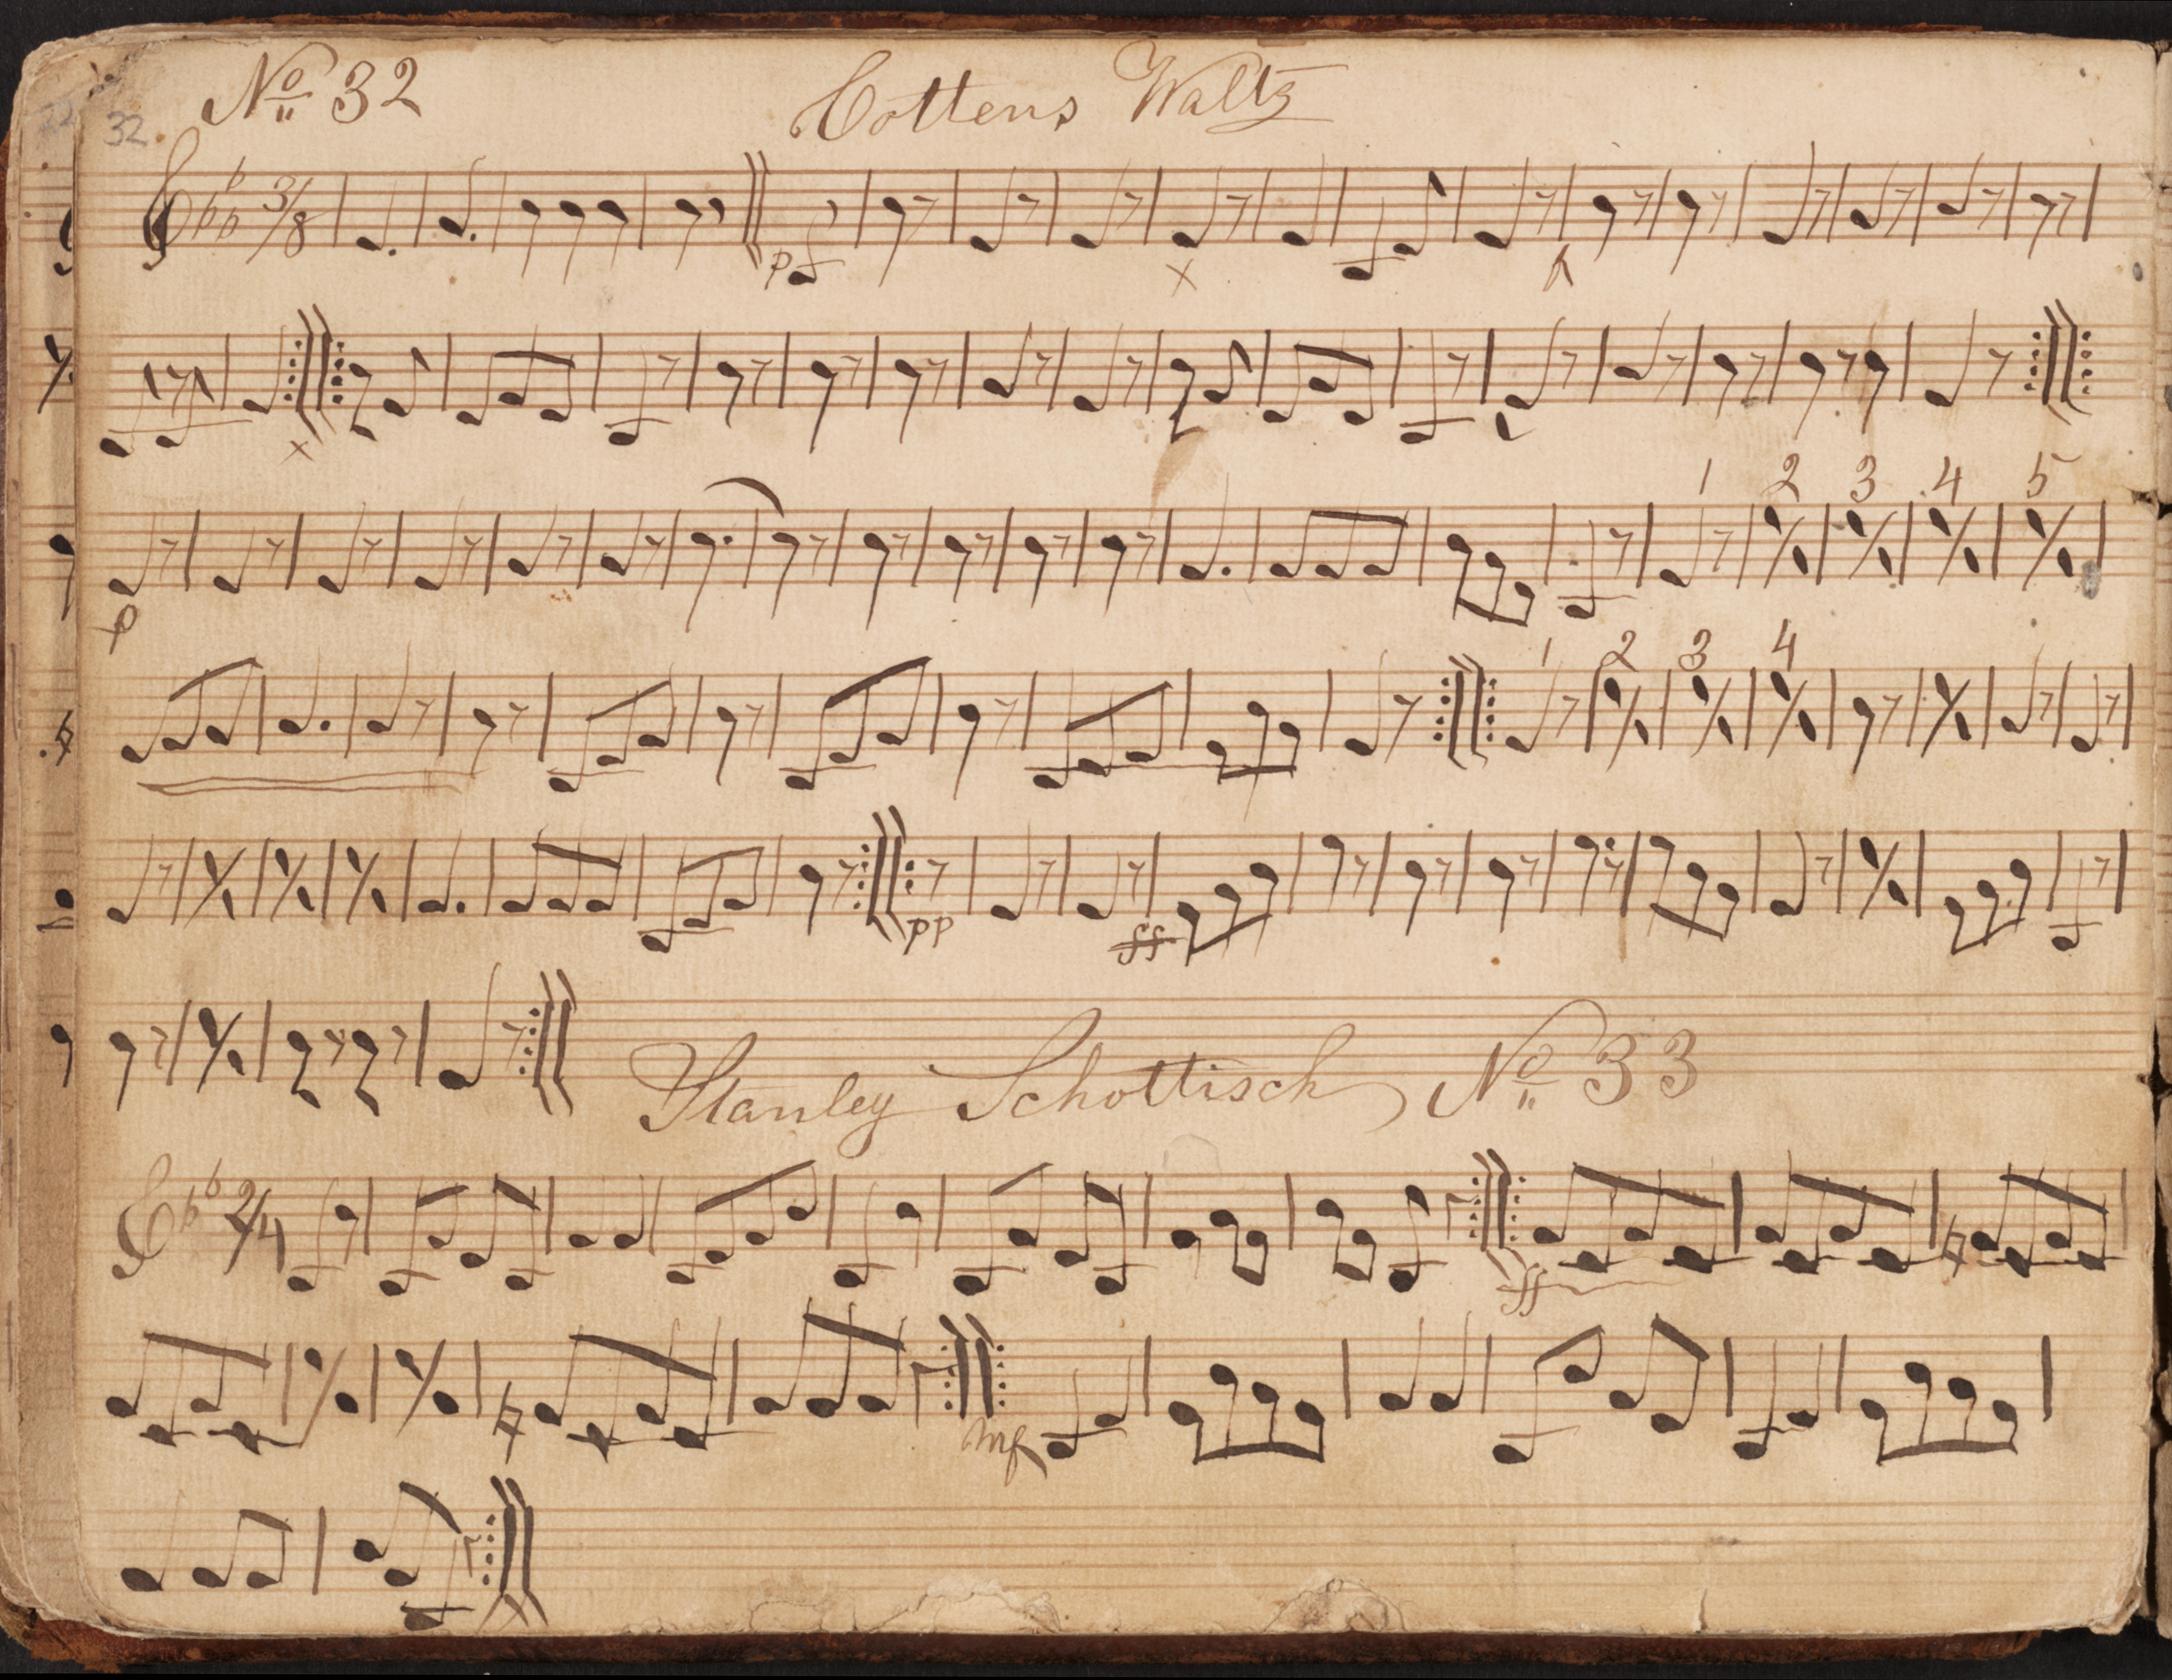 No 32 Cottens Waltz
32.
3/8
p
1 2 3 4 5
p
1 2 3 4
pp ff
Stanley Schottisch No 33
2/4
ff
mf